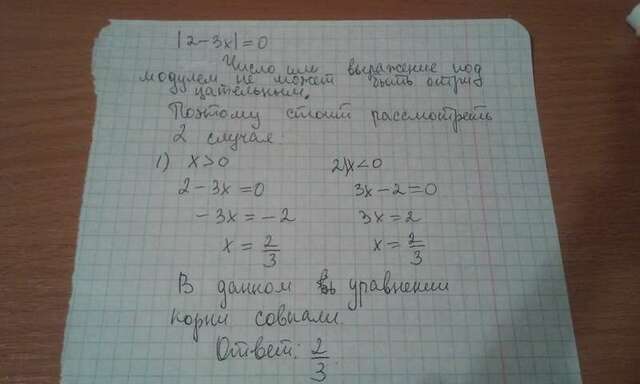 |2-3x|=0
Число или выражение под
модулем не может быть отри
цательным.
Поэтому стоит рассмотреть
2 случая:
1) x>0 2) x<0
2-3x=0 3x-2=0
-3x=-2 3x=2
x=2/3 x=2/3
В данном уравнении
корни совпали.
Ответ: 2/3.